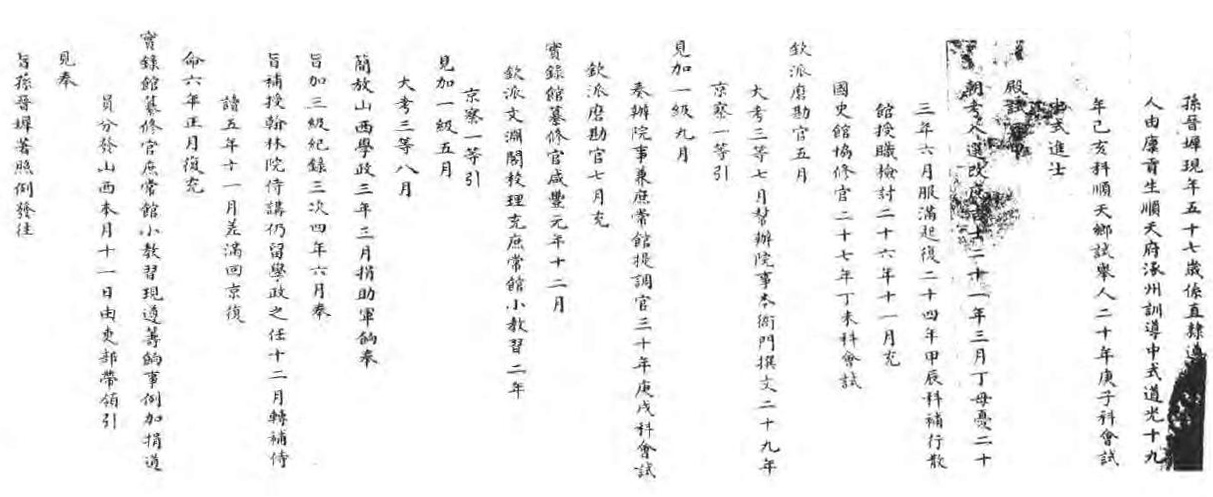 孫晉墀現年五十七歲係直隸
人由廩貢生順天府涿州訓導中式道光十九
年己亥科順天鄉試舉人二十年庚子科會試
中式進士
殿試
朝考入選改庶吉士二十一年三月丁母憂二十
三年六月服滿起復二十四年甲辰科補行散
館授職檢討二十六年十一月充
國史館協修官二十七年丁未科會試
欽派磨勘官五月
大考三等七月幫辦院事本衙門撰文二十九年
京察一等引
見加一級九月
奏辦院事兼庶常館提調官三十年庚戌科會試
欽派磨勘官七月充
實錄館纂修官咸豐元年十二月
欽派文淵閣校理充庶常館小教習二年
京察一等引
見加一級五月
大考三等八月
簡放山西學政三年三月捐助軍餉奉
旨加三級紀錄三次四年六月奉
旨補授翰林院侍講仍留學政之任十二月轉補侍
讀五年十一月差滿回京復
命六年正月復充
實錄館纂修官庶常館小教習現遵籌餉事例加捐道
員分發山西本月十一日由吏部帶領引
見奉
旨孫晉墀著照例發往